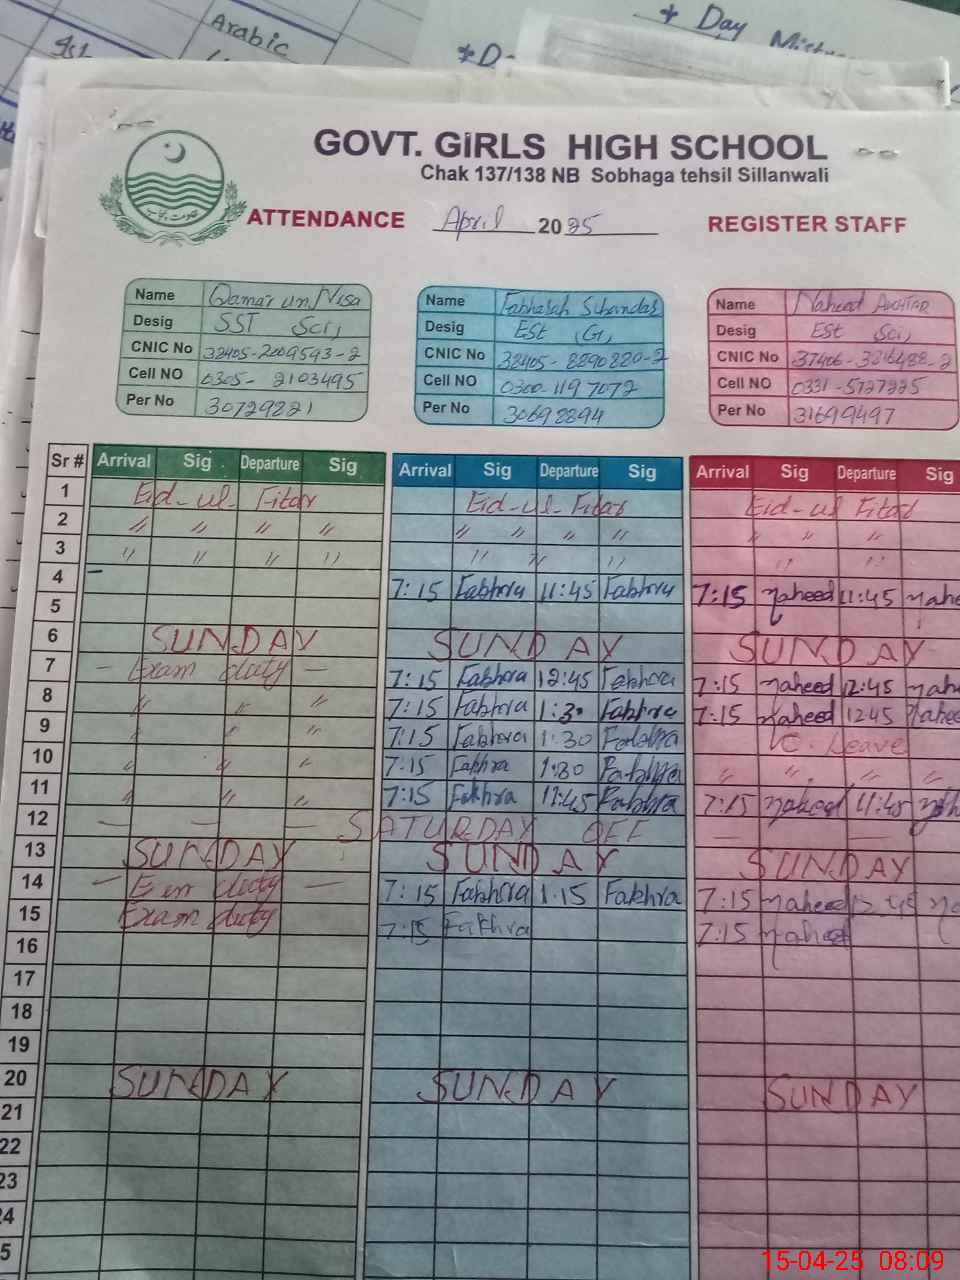 Arabic
* Day
* D
GOVT. GIRLS HIGH SCHOOL
Chak 137/138 NB Sobhaga tehsil Sillanwali
ATTENDANCE April 2025 REGISTER STAFF
Name Qamar un Nisa
Desig SST Sci,
CNIC No 38405-2009593-2
Cell NO 0305-2103495
Per No 30729821
Name
Desig ESt (G),
CNIC No 38405-8290820-2
Cell NO 0300 1197072
Per No 30698894
Name Naheed AKHTAR
Desig ESt Sci,
CNIC No
Cell NO 0331-5727225
Per No 31699497
Sr # Arrival Sig . Departure Sig Arrival Sig Departure Sig Arrival Sig Departure Sig
1 Eid-ul-Fitar Eid-ul-Fitar Eid-ul Fitar
2 " " " " " " " " " "
3 " " " " " " " " " "
4 7:15 Fakhra 11:45 Fakhra 7:15 naheed 11:45
5
6 SUNDAY SUNDAY SUNDAY
7 - Exam duty - 7:15 Fakhra 12:45 Fakhra 7:15 naheed 12:45
8 " " " 7:15 Fakhra 1:30 Fakhra 7:15 naheed 12:45 nahee
9 " " 7:15 Fakhra 1:30 Fakhra Leave
10 " " " 7:15 Fakhra 1:30 Fakhra " " " "
11 " " " 7:15 Fakhra 11:45 Fakhra 7:15 naheed 11:45
12 - - - SATURDAY OFF - -
13 SUNDAY SUNDAY SUNDAY
14 - Exam duty - 7:15 Fakhra 1:15 Fakhra 7:15 naheed 12 45
15 Exam duty 7:15 Fakhra 7:15 naheed
16
17
18
19
20 SUNDAY SUNDAY SUNDAY
21
22
23
24
5
15-04-25 08:09